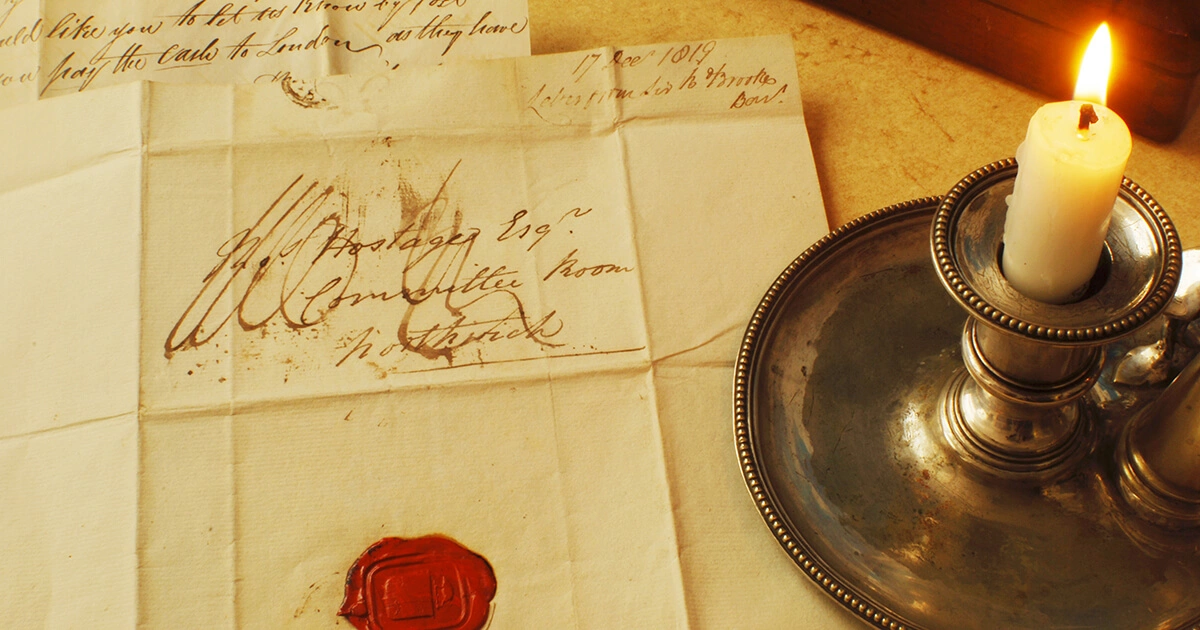 like you to let us know by post
pay the cash to London as they have
17 Dec 1819
Letter from Sir R Brooke
Bart
Hostage Esqr
Committee Room
Northwich